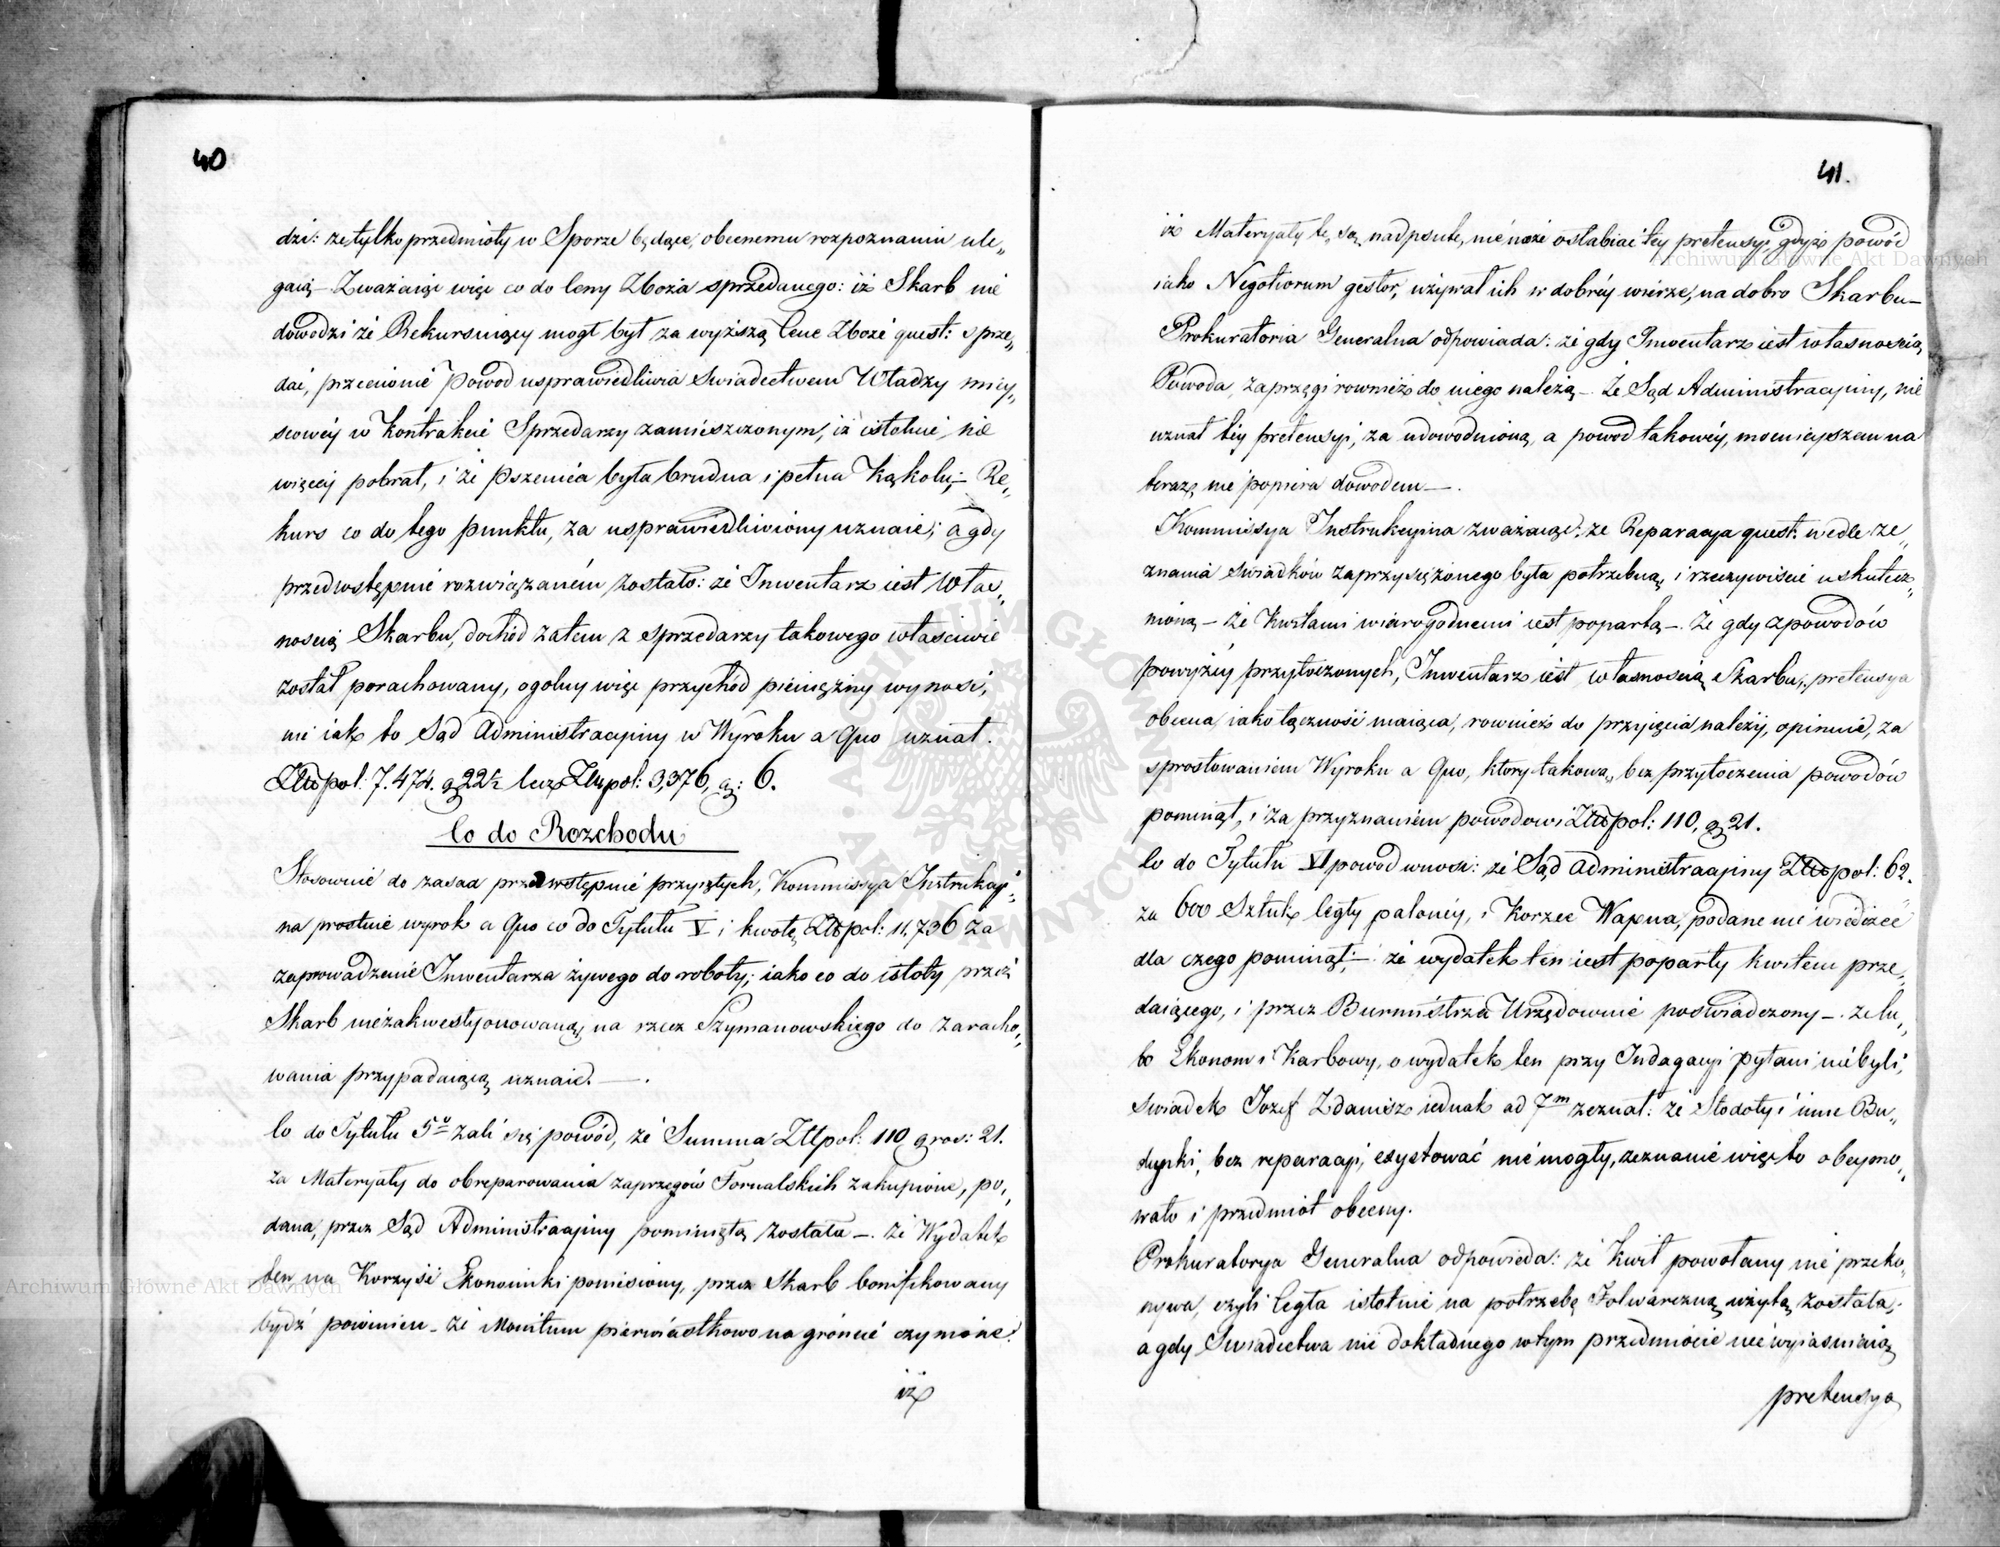 40
dzi: że tylko przedmioty w Sporze będące, obecnemu rozpoznaniu ule„
gaią – Zważaiąc więc co do Ceny Zboża sprzedanego: iż Skarb nie
dowodzi że Rekursuiący mogł był za wyższą Cenę Zboże quest: sprze„
dać, przeciwnie Powod usprawiedliwia Swiadectwem Władzy miey„
scowéy w Kontrakcie Sprzedarzy zamieszczonym, iż istotnie nie
więcej pobrał, i że Pszenica była brudna i pełna Kąkolu, – Re„
kurs co do tego punktu, za usprawiedliwiony uznaie; a gdy
przedwstępnie rozwiązaném zostało: że Inwentarz iest Wła„
nością Skarbu, dochód zatem z sprzedarzy takowego właściwie
został porachowany, ogolny więc przychód pieniężny wynosi,
nie iak to Sąd Administracyiny w Wyroku a Quo uznał.
Złtpol: 7.474. g 22½ lecz Złtpol: 3,376, g: 6.
Co do Rozchodu
Stosownie do zasad przedwstępnie przyiętych, Kommissya Instrukcyi„
na prostuie wyrok a Quo co do Tytułu V i kwotę Złtpol: 11,736 za
zaprowadzenie Inwentarza żywego do roboty; iako co do istoty przez
Skarb niezakwestyonowaną, na rzecz Szymanowskiego do zaracho„
wania przypadaiącą uznaie. —.
Co do Tytułu 5º żali się powód, że Summa Złtpol: 110 gros: 21.
za Materyały do obreparowania zaprzęgów Fornalskich zakupione, po„
dana, przez Sąd Administracyiny pominiętą została –. że Wydatek
ten na Korzyść Ekonomiki poniesiony, przez Skarb bonifikowany
bydź powinien – że Monitum pierwiastkowo na gróncie czynione:
iż
41.
iż Materyały te, są nadpsute, nie może osłabiać tey pretensyi, gdyż powód
iako Negotiorum gestor, używał ich w dobréy wierze, na dobro Skarbu –
Prokuratoria Generalna odpowiada: że gdy Inwentarz iest własnością
Powoda, zaprzęgi rownież do niego należą –. Że Sąd Administracyiny, nie
uznał téy pretensyi, za udowodnioną, a powod takowéy, mocnieyszem na
teraz, nie popiera dowodem —.
Kommissya Instrukcyina zważaiąc: że Reparacya quest: wedle ze„
znania swiadków zaprzysiężonego była potrzebną, i rzeczywiście uskutecz„
nioną – że Kwitami wiarogodnemi iest popartą –. Że gdy z powodów
powyżéy przytoczonych, Inwentarz iest własnością Skarbu, pretensya
obecna, iako łączność maiąca, rownież do przyięcia należy, opiniuie, za
sprostowaniem Wyroku a Quo, ktory takową, bez przytoczenia powodów
pominął, i za przyznaniem powodowi Złtpol: 110, g 21.
Co do Tytułu VI powód wnosi: że Sąd Administracyiny Złtpol: 62.
za 600 Sztuk Cegły paloney, i Korzec Wapna, podane nie wiedzieć
dla czego pominął; – że wydatek ten iest poparty kwitem prze„
daiącego, i przez Burmistrza Urzędownie poświadczony –. że lu„
bo Ekonom i Karbowy, o wydatek ten przy Indagacyi pytani nie byli,
swiadek Jozef Zdanisz iednak ad 7m zeznał: że Stodoły i inne Bu„
dynki, bez reparacyi, exystować nie mogły, zeznanie więc to obeymo„
wało i przedmiot obecny.
Prokuratorya Generalna odpowieda: że Kwit powołany nie przeko„
nywa, czyli Cegła istotnie na potrzebę Folwarczną użytą została;
a gdy Swiadectwa nic dokładnego w tym przedmiocie nie wyiaśniaią
pretensya
Archiwum Główne Akt Dawnych
Archiwum Główne Akt Dawnych